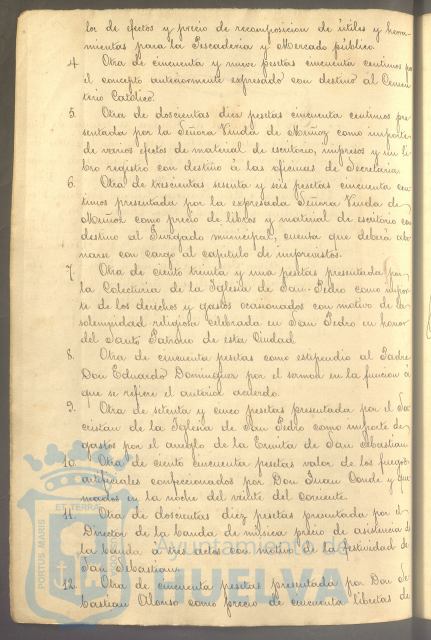 lor de efectos y precio de recomposicion de útiles y herra-
mientas para la Pescaderia y Mercado público.
4. Otra de cincuenta y nueve pesetas cincuenta centimos por
el concepto anteriormente expresado con destino al Cemen-
terio Católico.
5. Otra de doscientas diez pesetas cincuenta centimos pre-
sentada por la Señora Viuda de Muñoz como importe
de varios efectos de material de escritorio, impresos y un li-
bro registro con destino á las oficinas de Secretaria.
6. Otra de trescientas sesenta y seis pesetas cincuenta cen-
timos presentada por la expresada Señora Viuda de
Muñoz como precio de libros y material de escritorio con
destino al Juzgado municipal, cuenta que deberá abo-
narse con cargo al capitulo de imprevistos.
7. Otra de ciento treinta y una pesetas presentada por
la Colecturia de la Iglesia de San Pedro como impor-
te de los derechos y gastos ocasionados con motivo de la
solemnidad religiosa celebrada en San Pedro en honor
del Santo Patrono de esta Ciudad.
8. Otra de cincuenta pesetas como estipendio al Padre
Don Eduardo Dominguez por el sermon en la funcion á
que se refiere el anterior acuerdo.
9. Otra de setenta y cinco pesetas presentada por el Sa-
cristan de la Iglesia de San Pedro como importe de
gastos por el arreglo de la Ermita de San Sebastian
10. Otra de ciento cincuenta pesetas valor de los fuegos
artificiales confeccionados por Don Juan Conde y que-
mados en la noche del veinte del corriente.
11. Otra de doscientas diez pesetas presentada por el
Director de la banda de música precio de asistencia de
la banda a tres actos con motivo de la festividad de
San Sebastian.
12. Otra de cincuenta pesetas presentada por Don Se-
bastian Alonso como precio de cincuenta libretas de
PORTUS MARIS
ET TERRAE
Ayuntamiento de
HUELVA